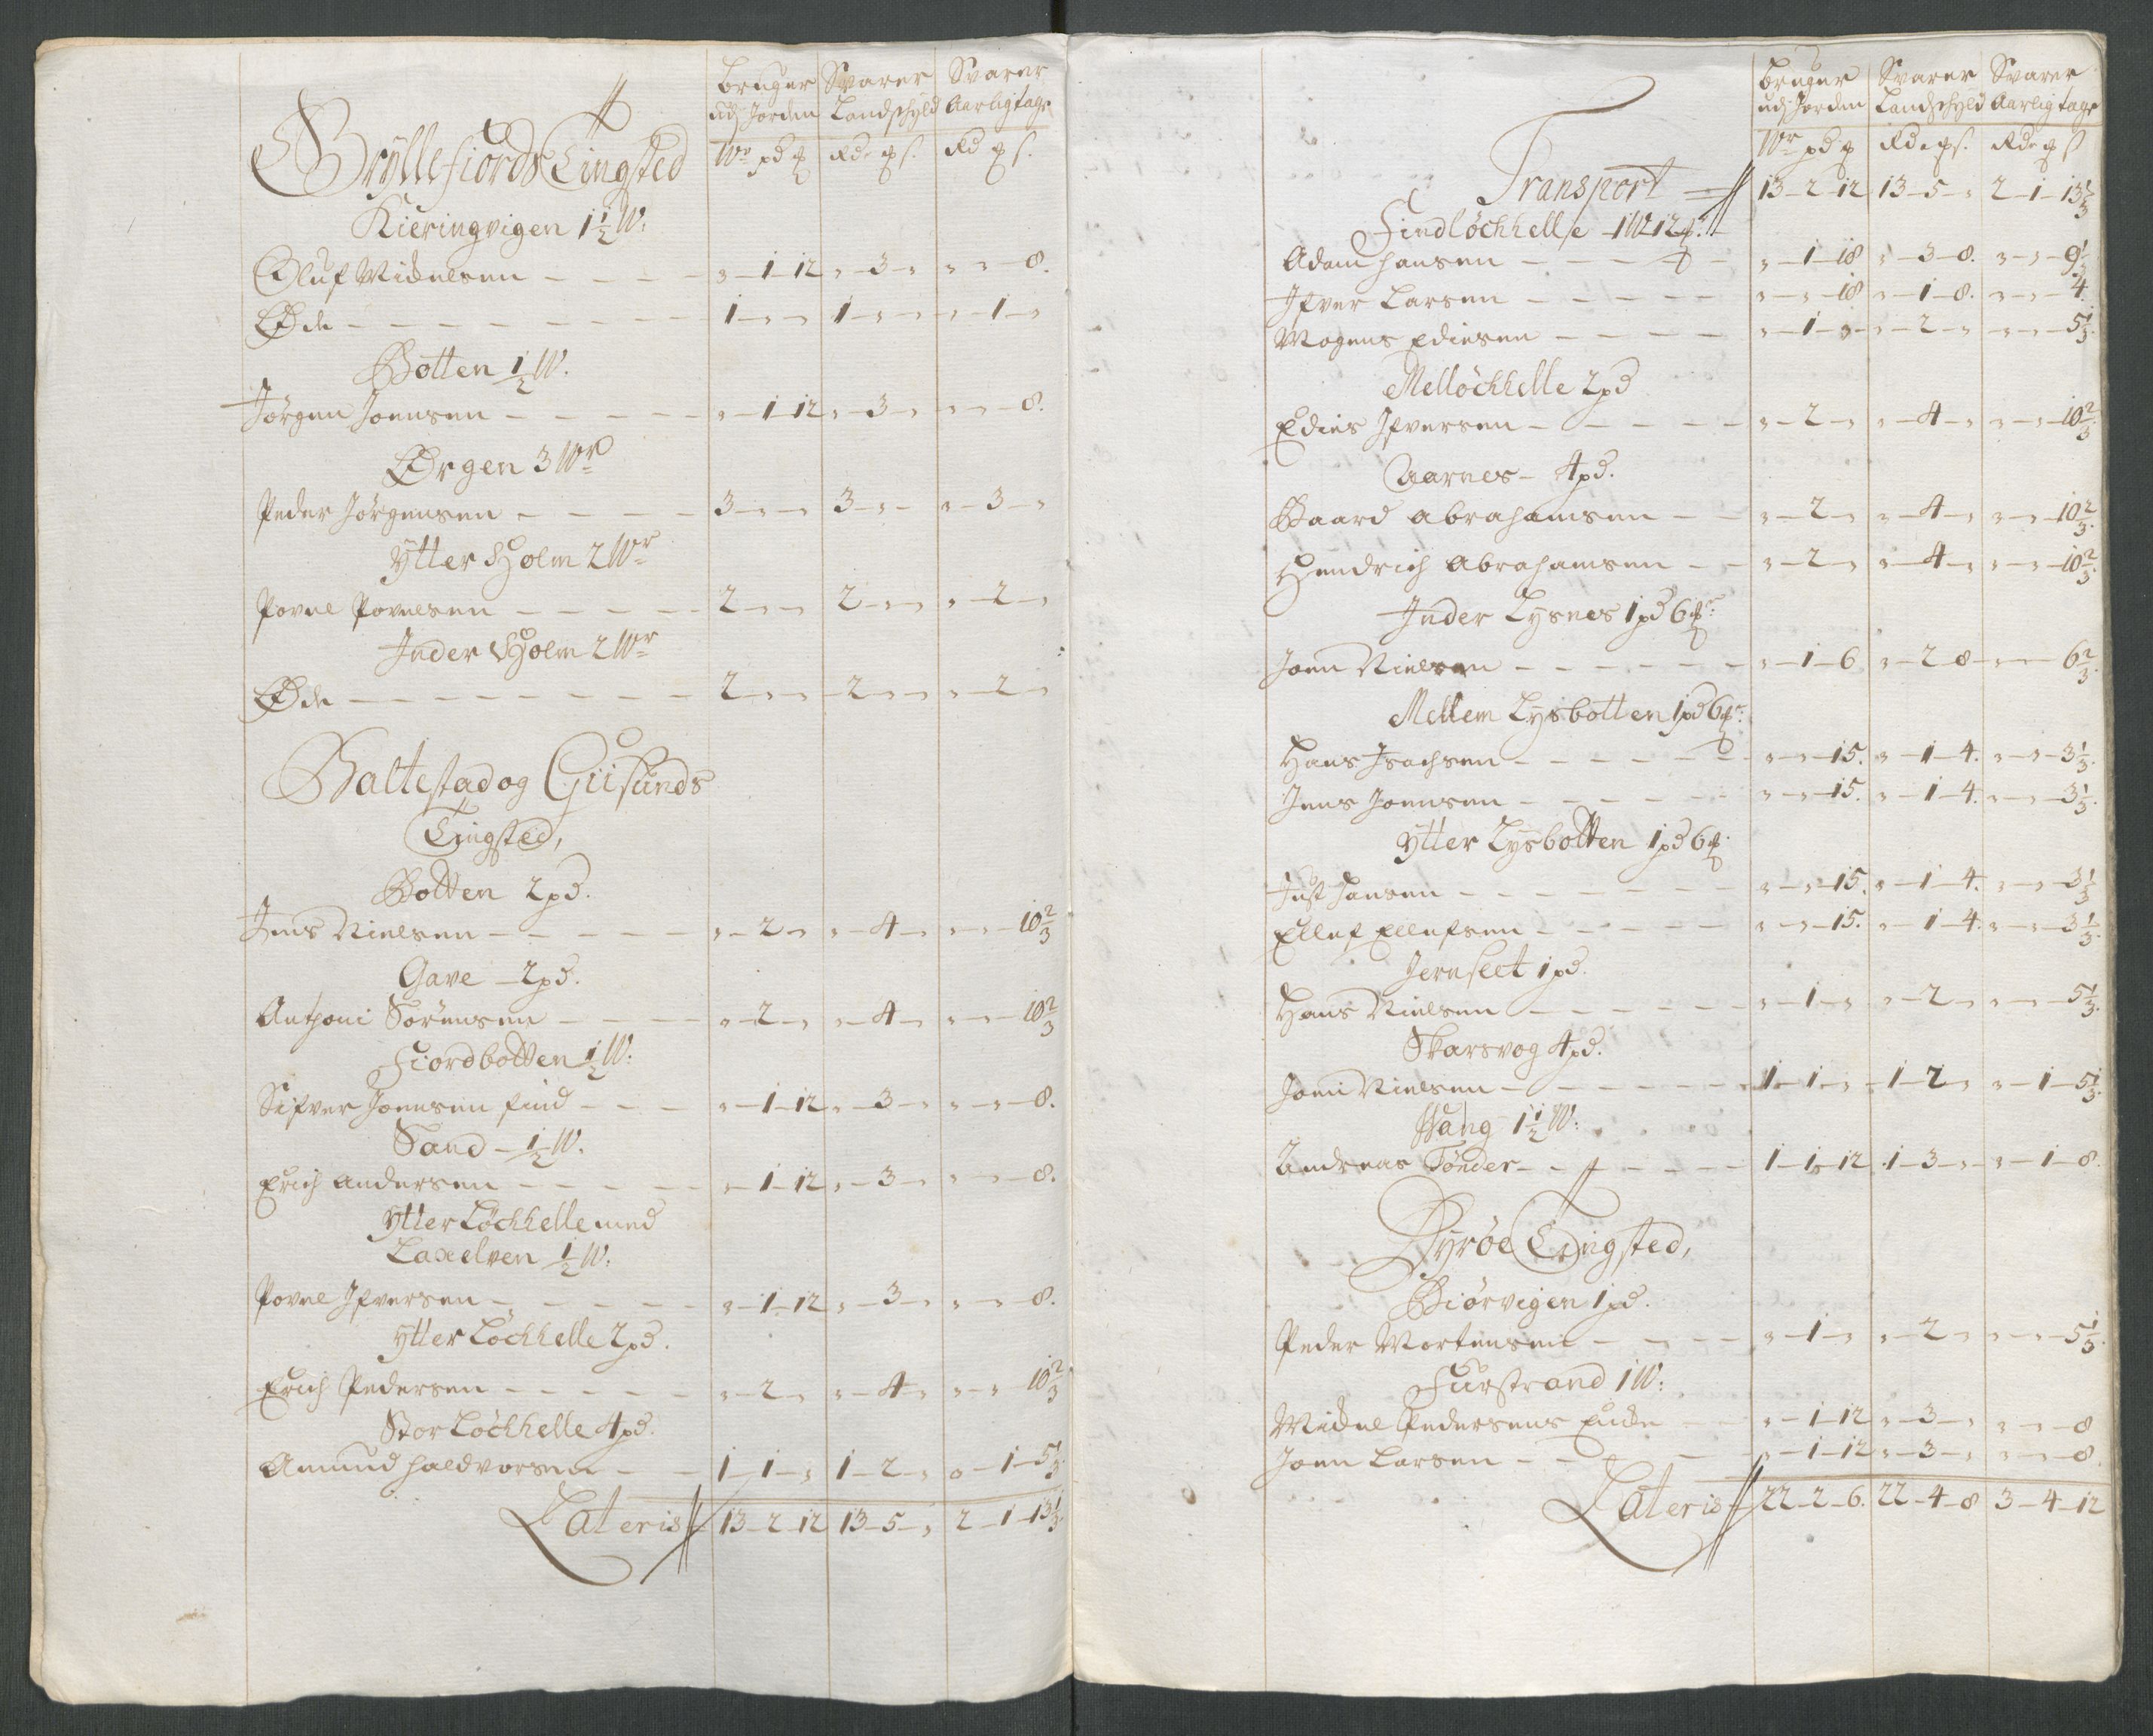 bruger Svarer Svarer
udj Jorden Landschyld Aarlig tage
Wr pd ℔ Rd ℔ s. Rd ℔ s.
Gryllefiords Tingsted
Kieringvigen 1½ W:
Oluf Michelsen - - - " - 1 - 12 " - 3 - " " - " - 8.
Øde - - - 1 - " - " 1 - " - " " - 1 - "
Botten ½ W.
Jörgen Joensen - - - " - 1 - 12 " - 3 - " " - " - 8.
Ørgen 3 Wr
Peder Jörgensen - - - 3 - " - " 3 - " - " " - 3 - "
Ytter Holm 2 Wr
Povel Povelsen - - - 2 - " - " 2 - " - " " - 2 - "
Inder Holm 2 Wr
Øde - - - 2 - " - " 2 - " - " " - 2 - "
Baltestad og Giisunds
Tingsted,
Botten 2 pd.
Jens Nielsen - - - " - 2 - " " - 4 - " " - " - 10⅔
Gave - 2 pd.
Anthoni Sörensen - - - " - 2 - " " - 4 - " " - " - 10⅔
Fiordbotten ½ W:
Sifver Joensen find - - - " - 1 - 12 " - 3 - " " - " - 8.
Sand - ½ W.
Erich Andersen - - - " - 1 - 12 " - 3 - " " - " - 8.
Ytter Löchhelle med
Laxelven ½ W:
Povel Ifversen - - - " - 1 - 12 " - 3 - " " - " - 8.
Ytter Löchhelle 2 pd.
Erich Pedersen - - - " - 2 - " " - 4 - " " - " 10⅔
Stor Löchhelle 4 pd.
Amund Haldvorsen - - 1 - 1 - " 1 - 2 - " " - 1 - 5⅓
Lateris 13 - 2 - 12 13 - 5 - " 2 - 1 - 13⅓
bruger Svarer Svarer
udj Jorden Landschyld Aarlig tage
Wr pd ℔ Rd ℔ s. Rd ℔ s
Transport 13 - 2 - 12 13 - 5 - " 2 - 1 - 13⅓
Findlöchhelle - 1 W 12 ℔
Adam Hansen - - - " - 1 - 18 " - 3 - 8. " - " - 9⅓
Ifver Larsen - - - " - " - 18 " - 1 - 8. " - " - 4
Mogens Ediesen - - - " - 1 - " " - 2 - " " - " - 5⅓
Mellöchhelle 2 pd
Edies Ifversen - - - " - 2 - " " - 4 - " " - " - 10⅔
Aarnes - 4 pd.
Baard Abrahamsen - - " - 2 - " " - 4 - " " - " - 10⅔
Hendrich Abrahamsen - - " - 2 - " " - 4 - " " - " - 10⅔
Inder Lysnes 1 pd 6 ℔
Joen Nielsen - - - " - 1 - 6 " - 2 - 8 " - " 6⅔
Mellem Lysbotten 1 pd 6 ℔
Hans Isachsen - - - " - " - 15. " - 1 - 4. " - " - 3⅓
Jens Joensen - - - " - " - 15. " - 1 - 4. " - " - 3⅓
Ytter Lysbotten 1 pd 6 ℔
Just Hansen - - - " - " - 15. " - 1 - 4. " - " - 3⅓
Ellef Ellefsen - - - " - " - 15. " - 1 - 4. " - " - 3⅓
Jernfleet 1 pd.
Hans Nielsen - - - " - 1 - " " - 2 - " " - " - 5⅓
Skarsvog 4 pd.
Joen Nielsen - - - 1 - 1 - " 1 - 2 - " " - 1 - 5⅓
Wang 1½ W:
Andreas Tönder - - - 1 - 1 - 12 1 - 3 - " " - 1 - 8.
Dyröe Tingsted,
Biörvigen 1 pd.
Peder Mortensen - - - " - 1 - " " - 2 - " " - " - 5⅓
Fürstrand 1 W:
Michel Pedersens Encke " - 1 - 12 " - 3 - " " - " - 8
Joen Larsen - - - " - 1 - 12 " - 3 - " " - " - 8.
Lateris 22 - 2 - 6. 22 - 4 - 8 3 - 4 - 12